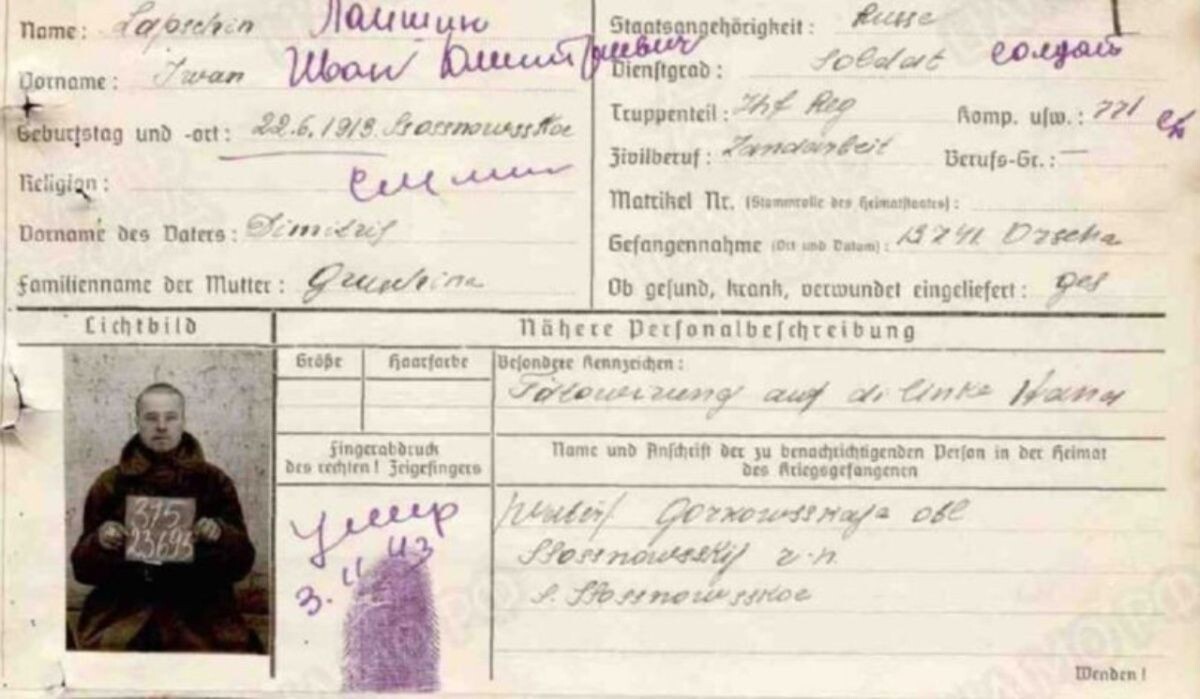 Name: Lapschin Лапшин
Vorname: Iwan Иван Дмитриевич
Geburtstag und -ort: 22.6.1913. Ssossnowsskoe
Religion:
Vorname des Vaters: Dimitrij
Familienname der Mutter:
Staatsangehörigkeit: Russe
Dienstgrad: Soldat солдат
Truppenteil: Inf Reg Komp. usw.: 771
Zivilberuf: Landarbeit Berufs-Gr.: —
Matrikel Nr. (Stammrolle des Heimatstaates):
Gefangennahme (Ort und Datum): Orscha
Ob gesund, krank, verwundet eingeliefert: ges
Lichtbild
Nähere Personalbeschreibung
Größe Haarfarbe Besondere Kennzeichen:
auf di linke Hand
Fingerabdruck
des rechten! Zeigefingers
умер
43
Name und Anschrift der zu benachrichtigenden Person in der Heimat
des Kriegsgefangenen
Gorkowsskaja obl
Ssossnowsskij r-n
s. Ssossnowsskoe
375
23695
Wenden!